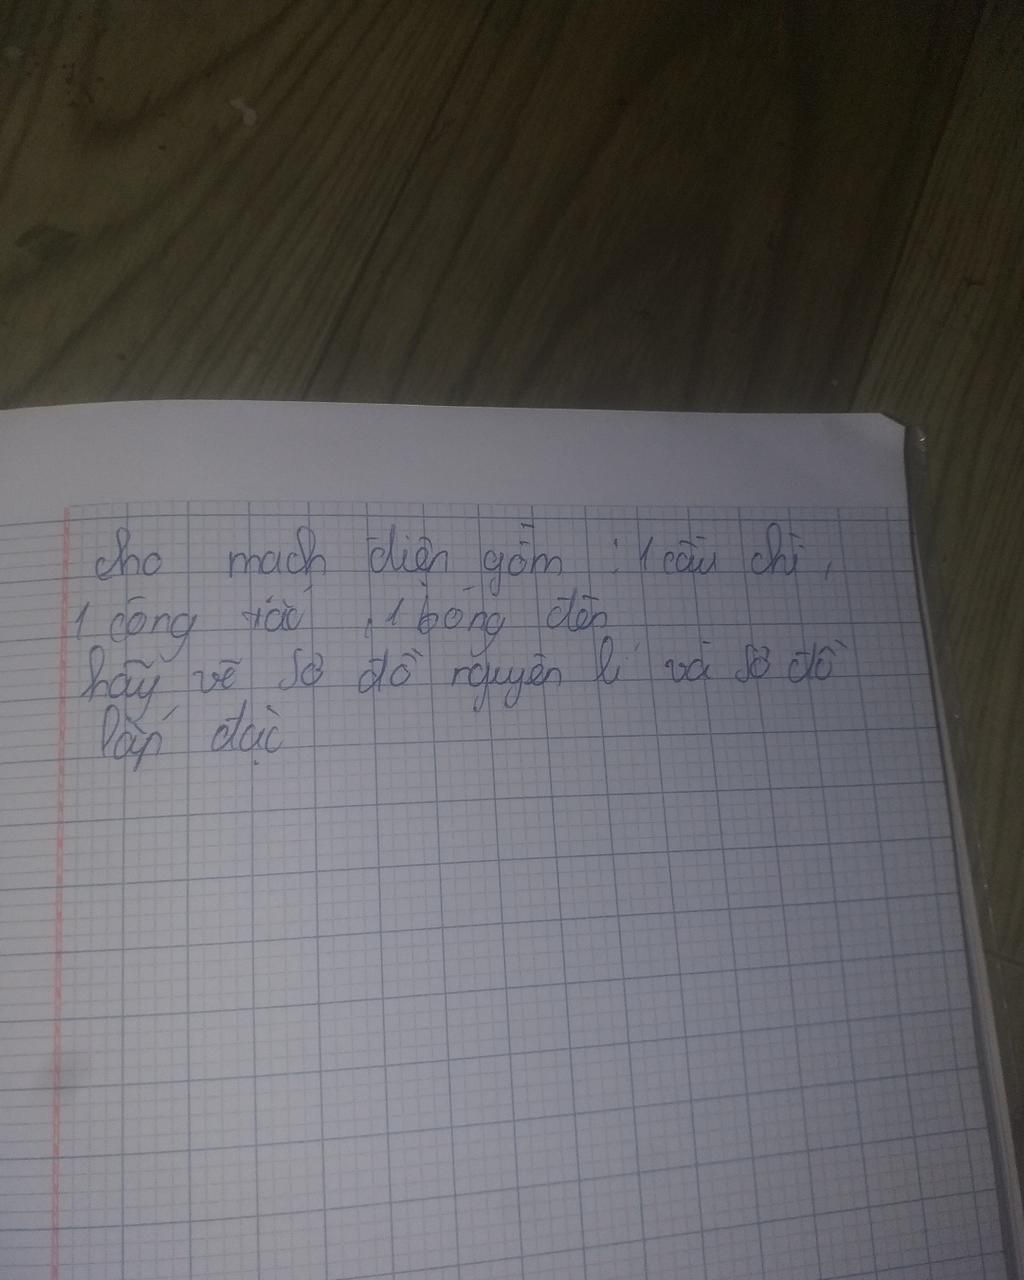 cho mạch điện gồm : 1 cầu chì,
1 công tắc , 1 bóng đèn
hãy vẽ sơ đồ nguyên lí và sơ đồ
lắp đặt